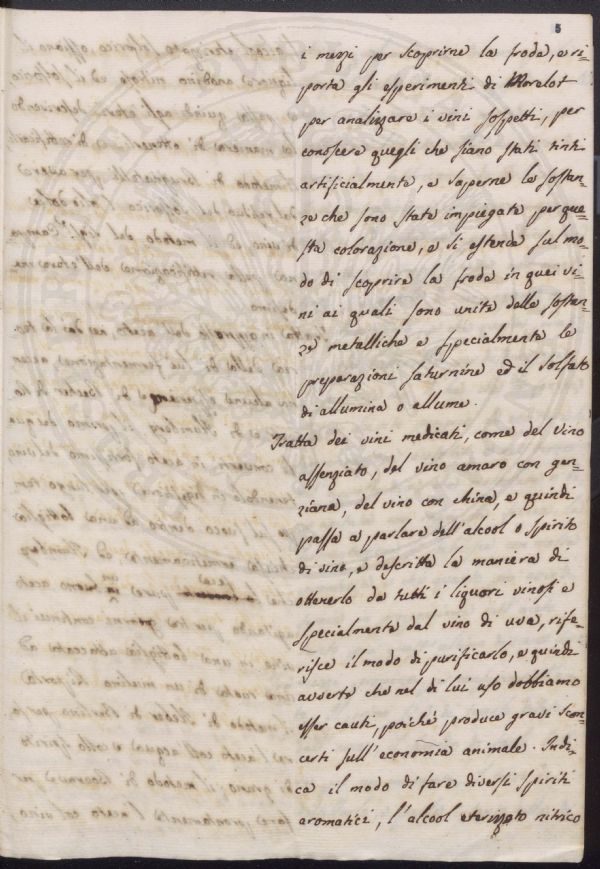 5
i mezzi per scoprirne la frode, e ri=
porta gli esperimenti di Morelot
per analizzare i vini sospetti, per
conoscere quegli che siano stati tinti
artificialmente, e saperne le sostan=
ze che sono state impiegate per que=
sta colorazione, e si estende sul mo=
do di scoprire la frode in quei vi=
ni ai quali sono unite delle sostan=
ze metalliche e specialmente le
preparazioni saturnine ed il solfato
di allumina o allume.
Tratta dei vini medicati, come del vino
assenziato, del vino amaro con gen=
ziana, del vino con china, e quindi
passa a parlare dell'alcool o spirito
di vino, e descritta la maniera di
ottenerlo da tutti i liquori vinosi e
specialmente dal vino di uva, rife=
risce il modo di purificarlo, e quindi
averte che nel di lui uso dobbiamo
esser cauti, poiché produce gravi scon=
certi sull'economia animale. Indi=
ca il modo di fare diversi spiriti
aromatici, l'alcool eterizzato nitrico